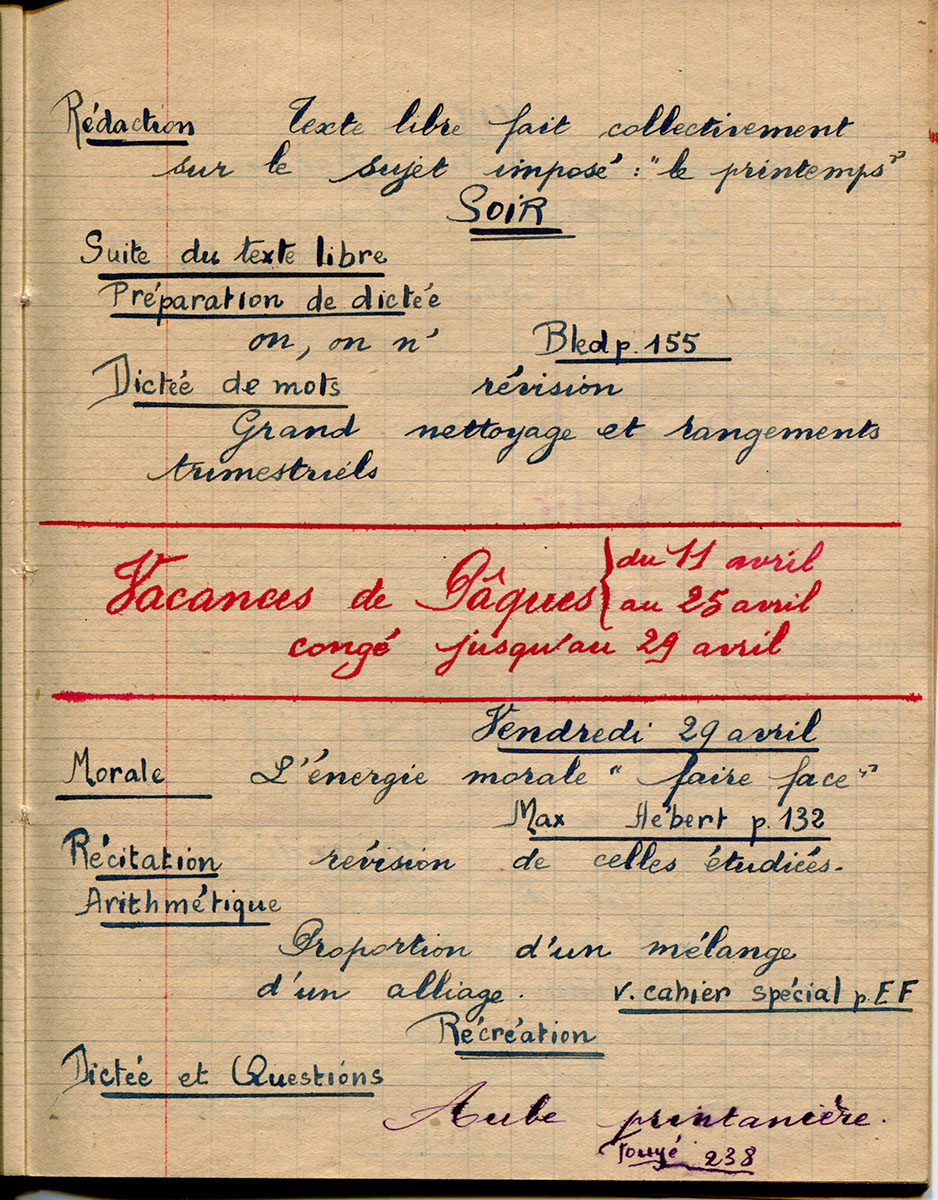 Rédaction Texte libre fait collectivement
sur le sujet imposé : "le printemps"
SOIR
Suite du texte libre
Préparation de dictée
on, on n' Bled p. 155
Dictée de mots révision
Grand nettoyage et rangements
trimestriels
Vacances de Pâques } du 11 avril
au 25 avril
congé jusqu'au 29 avril
Vendredi 29 avril
Morale L'énergie morale "faire face"
Max Hébert p. 132
Récitation révision de celles étudiées.
Arithmétique
Proportion d'un mélange
d'un alliage. v. cahier spécial p. EF
Récréation
Dictée et Questions
Aube printanière.
238